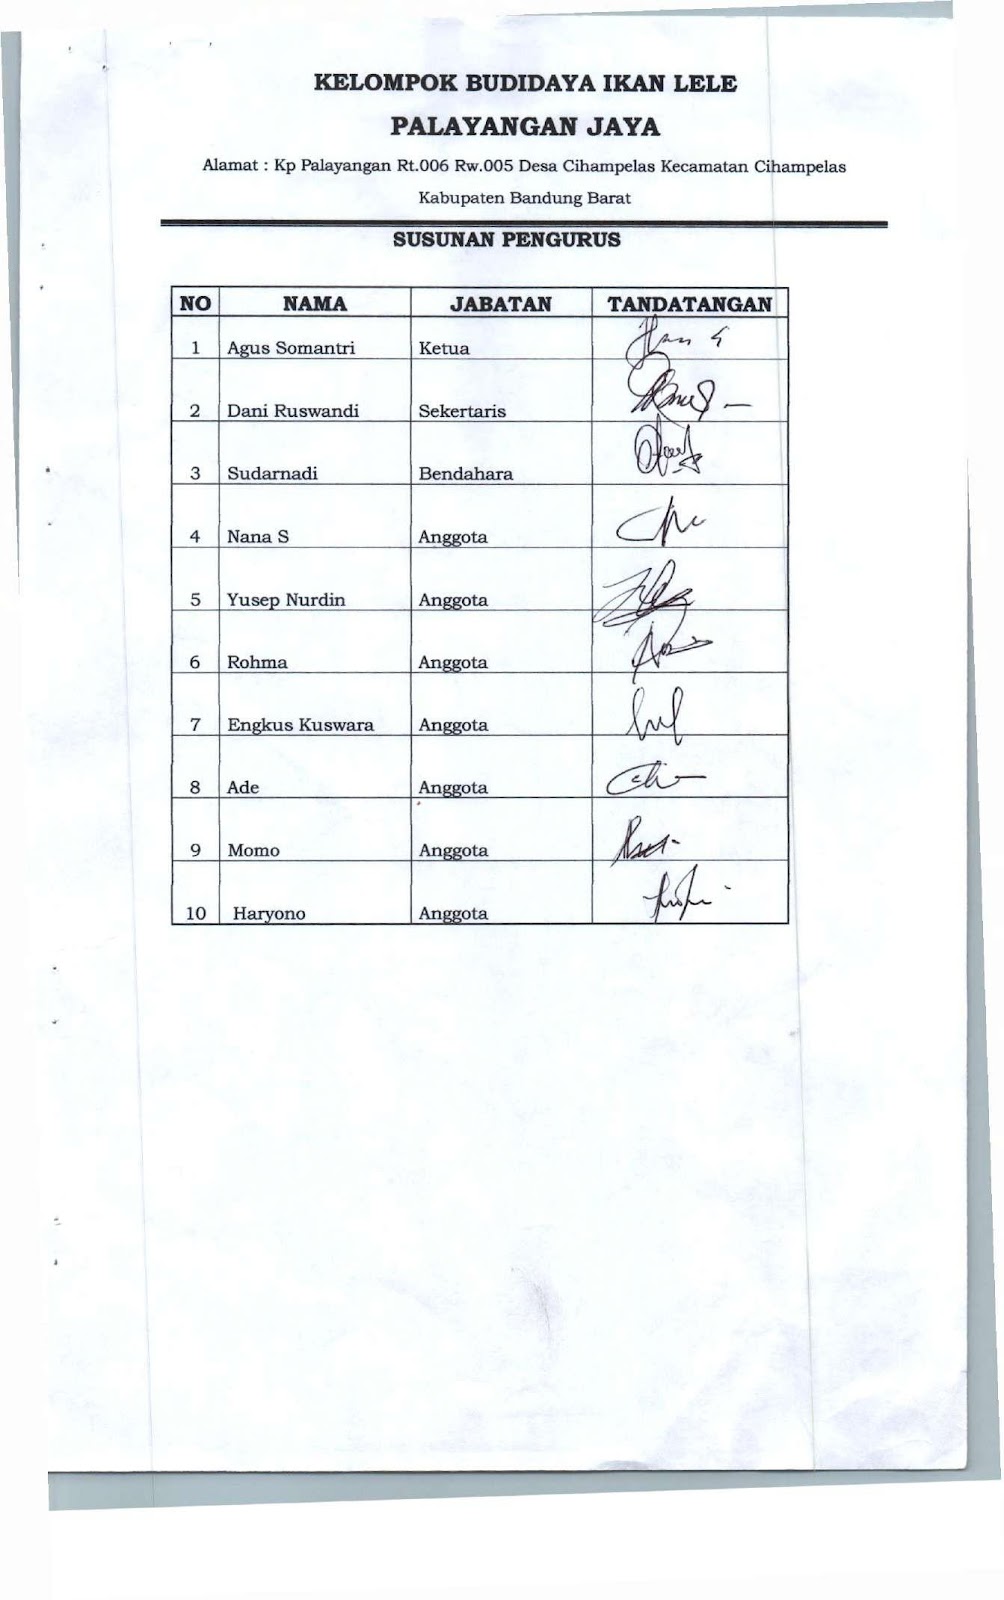 KELOMPOK BUDIDAYA IKAN LELE
PALAYANGAN JAYA
Alamat : Kp Palayangan Rt.006 Rw.005 Desa Cihampelas Kecamatan Cihampelas
Kabupaten Bandung Barat
SUSUNAN PENGURUS
NO NAMA JABATAN TANDATANGAN
1 Agus Somantri Ketua
2 Dani Ruswandi Sekertaris
3 Sudarnadi Bendahara
4 Nana S Anggota
5 Yusep Nurdin Anggota
6 Rohma Anggota
7 Engkus Kuswara Anggota
8 Ade Anggota
9 Momo Anggota
10 Haryono Anggota